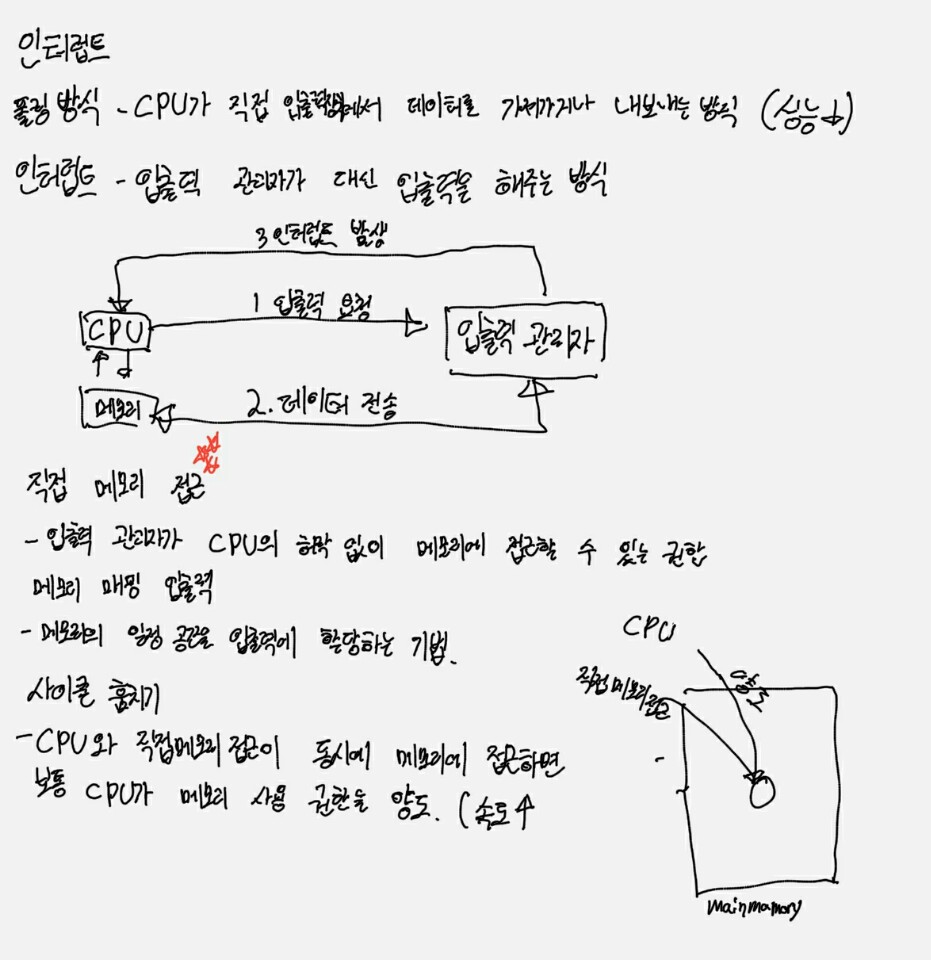 인터럽트
폴링 방식 - CPU가 직접 입출력장치에서 데이터를 가져가거나 내보내는 방식 (성능↓)
인터럽트 - 입출력 관리자가 대신 입출력을 해주는 방식
3 인터럽트 발생
1 입출력 요청
CPU
입출력 관리자
메모리
2. 데이터 전송
직접 메모리 접근
- 입출력 관리자가 CPU의 허락 없이 메모리에 접근할 수 있는 권한
메모리 매핑 입출력
- 메모리의 일정 공간을 입출력에 할당하는 기법.
사이클 훔치기
- CPU와 직접메모리 접근이 동시에 메모리에 접근하면
보통 CPU가 메모리 사용 권한을 양도. (속도↑
CPU
양도
직접메모리접근
mainmamory